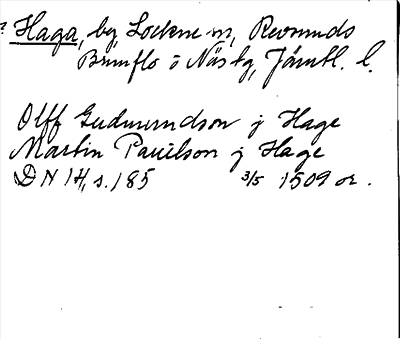 ? Haga, by, Lockne sn, Revsunds
Brunflo o Näs tg, Jämtl. l.
Olff Gudmundson j Hage
Martin Pauelson j Hage
DN 14, s. 185 3/5 1509 or.